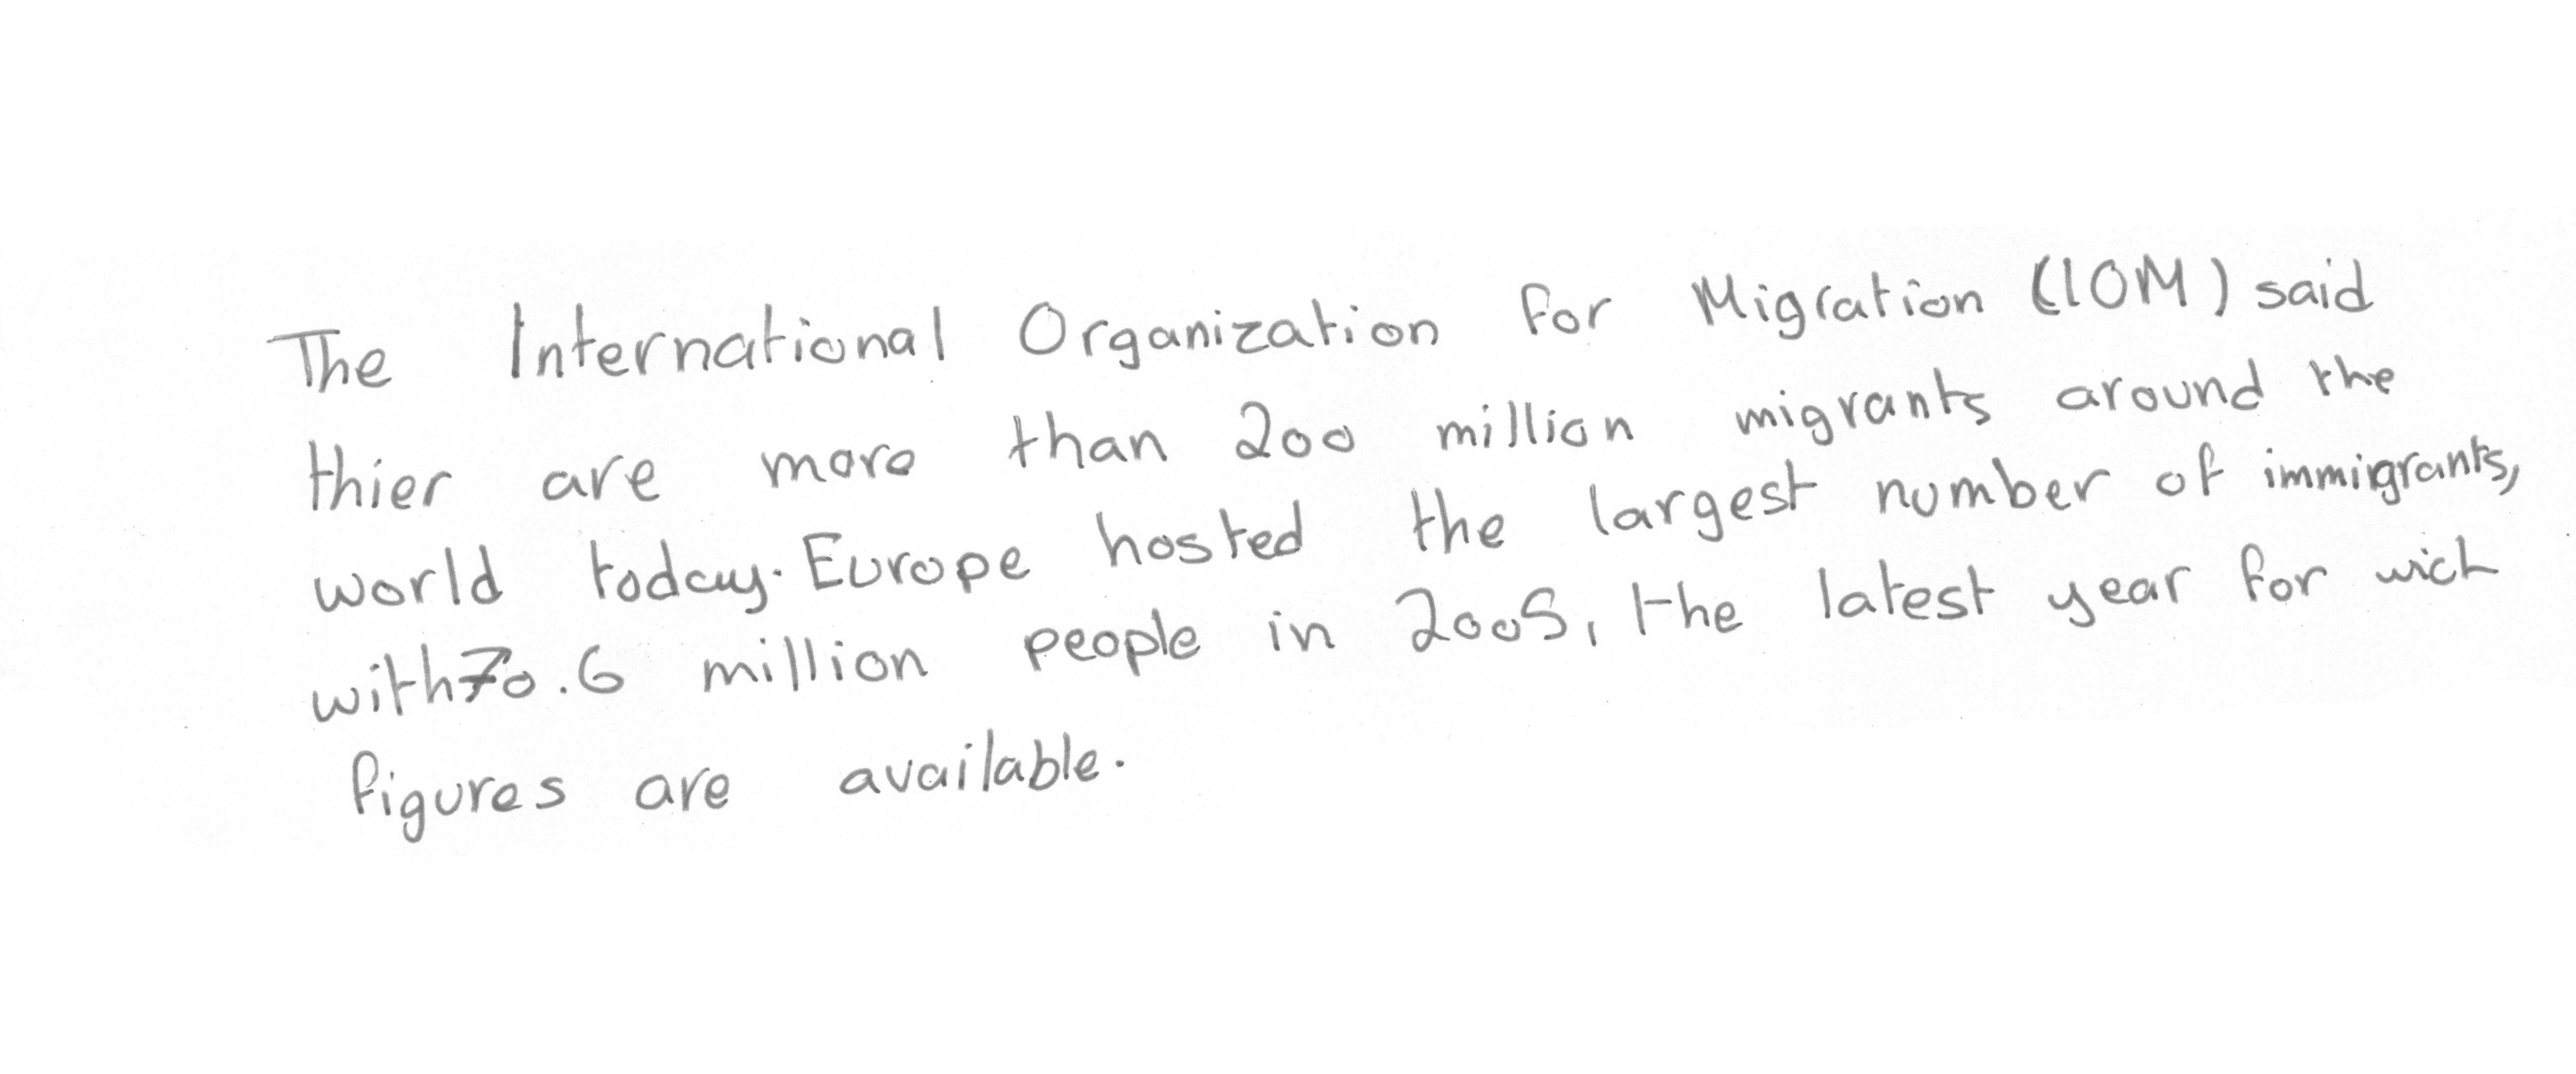 The International Organization for Migration (IOM) said
thier are more than 200 million migrants around the
world today. Europe hosted the largest number of immigrants,
with 70.6 million people in 2005, the latest year for wich
figures are available.